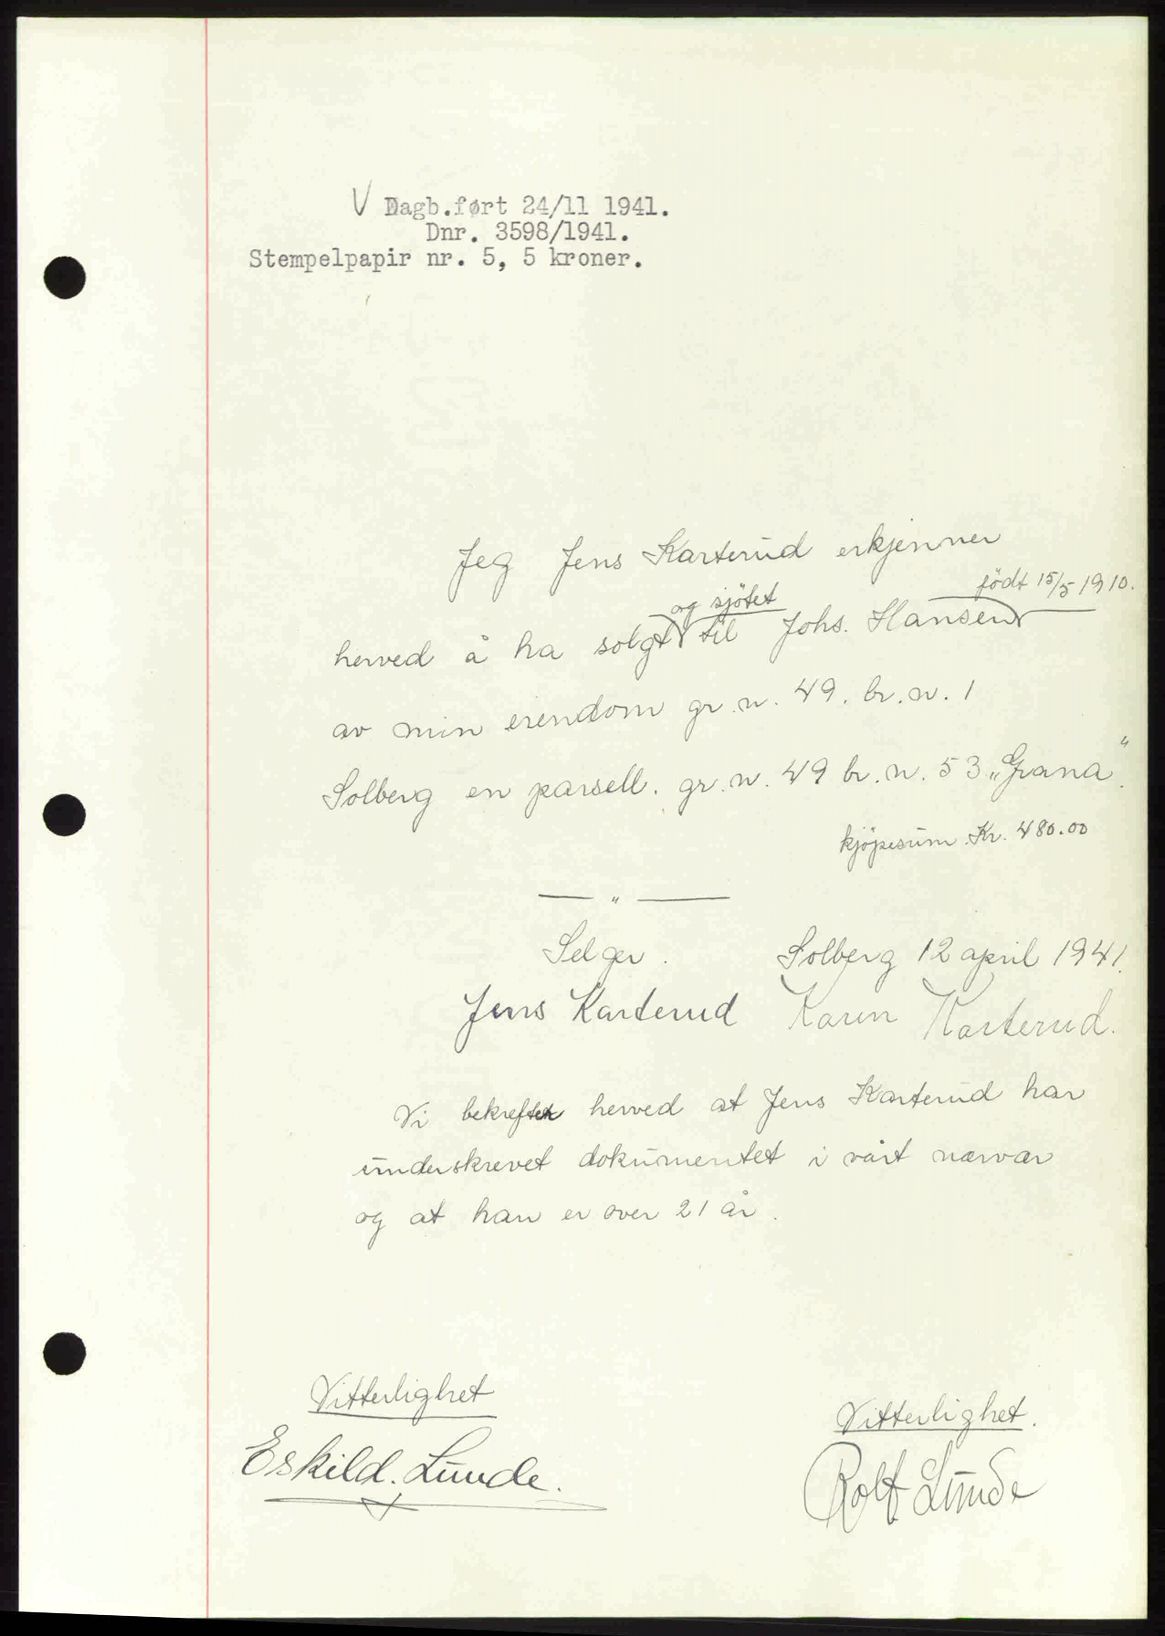 V Dagb.ført 24/11 1941.
Dnr. 3598/1941.
Stempelpapir nr. 5, 5 kroner.
Jeg Jens Karterud erkjenner
og sjötet født 15/5 1910.
herved å ha solgt til Johs. Hansen
av min eiendom gr. n. 49. br. n. 1
Solberg en parsell. gr. n. 49 br. n. 53 „Grana".
kjöpesum Kr. 480.00
— " —
Selger. Solberg 12 april 1941.
Jens Karterud Karen Karterud.
Vi bekrefter herved at Jens Karterud har
underskrevet dokumentet i vårt nærvær
og at han er over 21 år.
Vitterlighet Vitterlighet.
Eskild. Lunde. Rolf Lunde